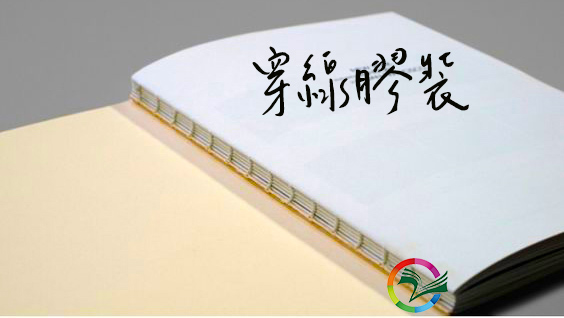 穿線膠裝